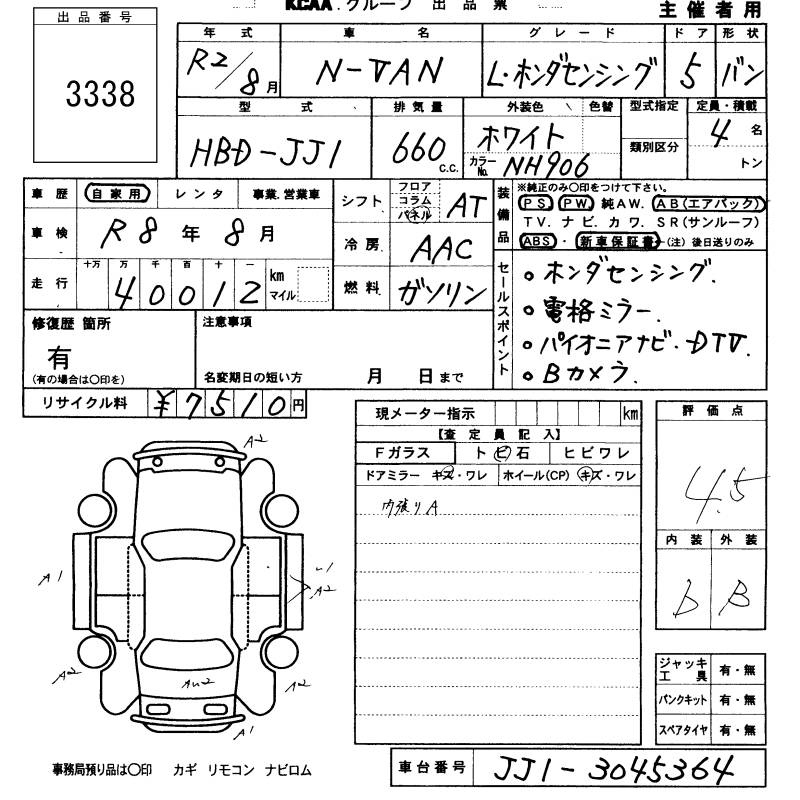 KCAA グループ 出品票
主催者用
出品番号
3338
年式 車名 グレード ドア 形状
R2/8月 N-VAN L・ホンダセンシング 5 バン
型式 排気量 外装色 色替 型式指定 定員・積載
HBD-JJ1 660 c.c. ホワイト カラーNo. NH906 類別区分 4名 トン
車歴 自家用 レンタ 事業.営業車
車検 R8年8月
走行 十万 万 千 百 十 一 km マイル
40012
シフト フロア コラム パネル AT
冷房 AAC
燃料 ガソリン
装備品 ※純正のみ〇印をつけて下さい。
PS PW 純AW. AB(エアバック)
TV. ナビ. カワ. SR(サンルーフ)
ABS・新車保証書(注)後日送りのみ
セールスポイント
。ホンダセンシング.
。電格ミラー.
。パイオニアナビ.DTV.
。Bカメラ.
修復歴 箇所 注意事項
有
(有の場合は〇印を) 名変期日の短い方 月 日まで
リサイクル料 ¥7510円
現メーター指示 km
【査定員記入】
Fガラス トビ石 ヒビワレ
ドアミラー キズ・ワレ ホイール(CP) キズ・ワレ
内張りA
評価点
4.5
内装 外装
b B
A2
A1
A2
A2 AU2 A2
A1
ジャッキ工具 有・無
パンクキット 有・無
スペアタイヤ 有・無
事務局預り品は〇印 カギ リモコン ナビロム
車台番号 JJ1-3045364